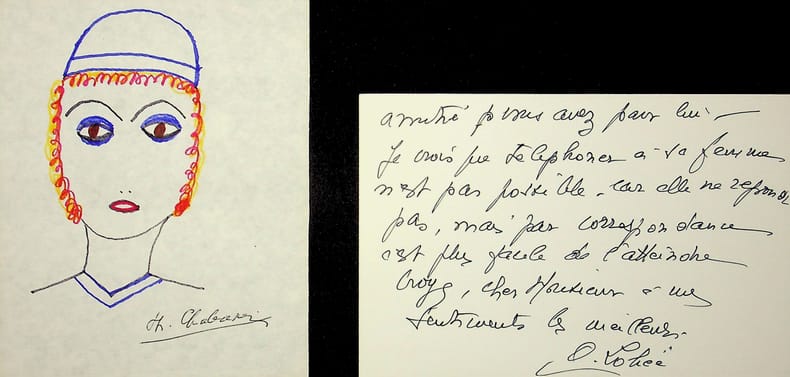 Th.
amitié que vous avez pour lui –
Je crois que téléphoner à sa femme
n'est pas possible, car elle ne répond
pas, mais par correspondance
c'est plus facile de l'atteindre
Croyez, cher Monsieur à mes
sentiments les meilleurs.